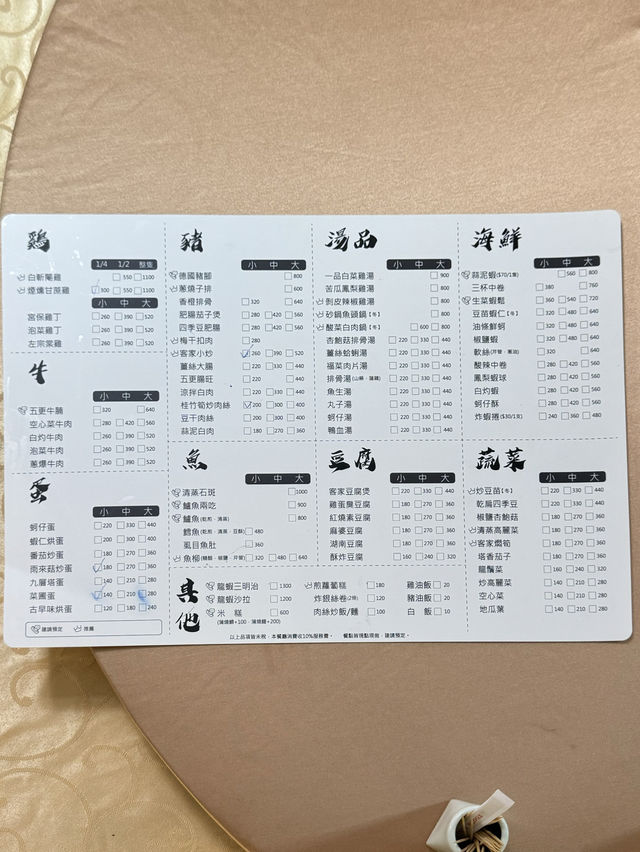 鷄
1/4 1/2 整隻
白斬閹雞 550 1100
煙燻甘蔗雞 300 550 1100
小 中 大
宮保雞丁 260 390 520
泡菜雞丁 260 390 520
左宗棠雞 260 390 520
牛
小 中 大
五更牛腩 320 640
空心菜牛肉 280 420 560
白灼牛肉 260 390 520
泡菜牛肉 260 390 520
蔥爆牛肉 260 390 520
蛋
小 中 大
蚵仔蛋 220 330 440
蝦仁烘蛋 200 300 400
番茄炒蛋 180 270 360
雨來菇炒蛋 180 270 360
九層塔蛋 140 210 280
菜圃蛋 140 210 280
古早味烘蛋 120 180 240
建議預定 推薦
豬
小 中 大
德國豬腳 800
蔥燒子排 600
香橙排骨 320 640
肥腸茄子煲 280 420 560
四季豆肥腸 280 420 560
梅干扣肉 280
客家小炒 260 390 520
薑絲大腸 220 330 440
五更腸旺 220 440
涼拌白肉 220 330 440
桂竹筍炒肉絲 200 300 400
豆干肉絲 200 300 400
蒜泥白肉 180 270 360
魚
小 中 大
清蒸石斑 1000
鱸魚兩吃 900
鱸魚(乾煎、清蒸) 800
鱈魚(乾煎、清蒸、豆酥) 480
虱目魚肚 360
魚柳(糖醋、椒鹽、芹管) 320 480 640
湯品
小 中 大
一品白菜雞湯 900
苦瓜鳳梨雞湯 800
剝皮辣椒雞湯 800
砂鍋魚頭鍋【冬】 800
酸菜白肉鍋【冬】 600 800
杏鮑菇排骨湯 220 330 440
薑絲蛤蜊湯 220 330 440
福菜肉片湯 220 330 440
排骨湯(山藥、蓮藕) 220 330 440
魚生湯 220 330 440
丸子湯 220 330 440
蚵仔湯 220 330 440
鴨血湯 220 330 440
豆腐
小 中 大
客家豆腐煲 220 330 440
雞蛋臭豆腐 200 300 400
紅燒素豆腐 180 270 360
麻婆豆腐 180 270 360
湖南豆腐 180 270 360
酥炸豆腐 160 240 320
海鮮
小 中 大
蒜泥蝦($70/1隻) 560 800
三杯中卷 380 760
生菜蝦鬆 360 540 720
豆苗蝦仁【冬】 320 480 640
油條鮮蚵 320 480 640
椒鹽蝦 320 480 640
軟絲(芹管、薑油) 320 640
酸辣中卷 280 420 560
鳳梨蝦球 280 420 560
白灼蝦 280 420 560
蚵仔酥 280 420 560
炸蝦捲($30/1支) 240 360 480
蔬菜
小 中 大
炒豆苗【冬】 220 330 440
乾扁四季豆 220 330 440
椒鹽杏鮑菇 180 270 360
清蒸高麗菜 180 270 360
客家燜筍 180 270 360
塔香茄子 180 270 360
龍鬚菜 160 240 320
炒高麗菜 140 210 280
空心菜 140 210 280
地瓜葉 140 210 280
其他
龍蝦三明治 1300 煎蘿蔔糕 180 雞油飯 20
龍蝦沙拉 1200 炸銀絲卷(2條) 120 豬油飯 20
米糕 600 肉絲炒飯/麵 100 白飯 10
以上品項皆未稅,本餐廳消費收10%服務費。 餐點皆現點現做,建議預定。